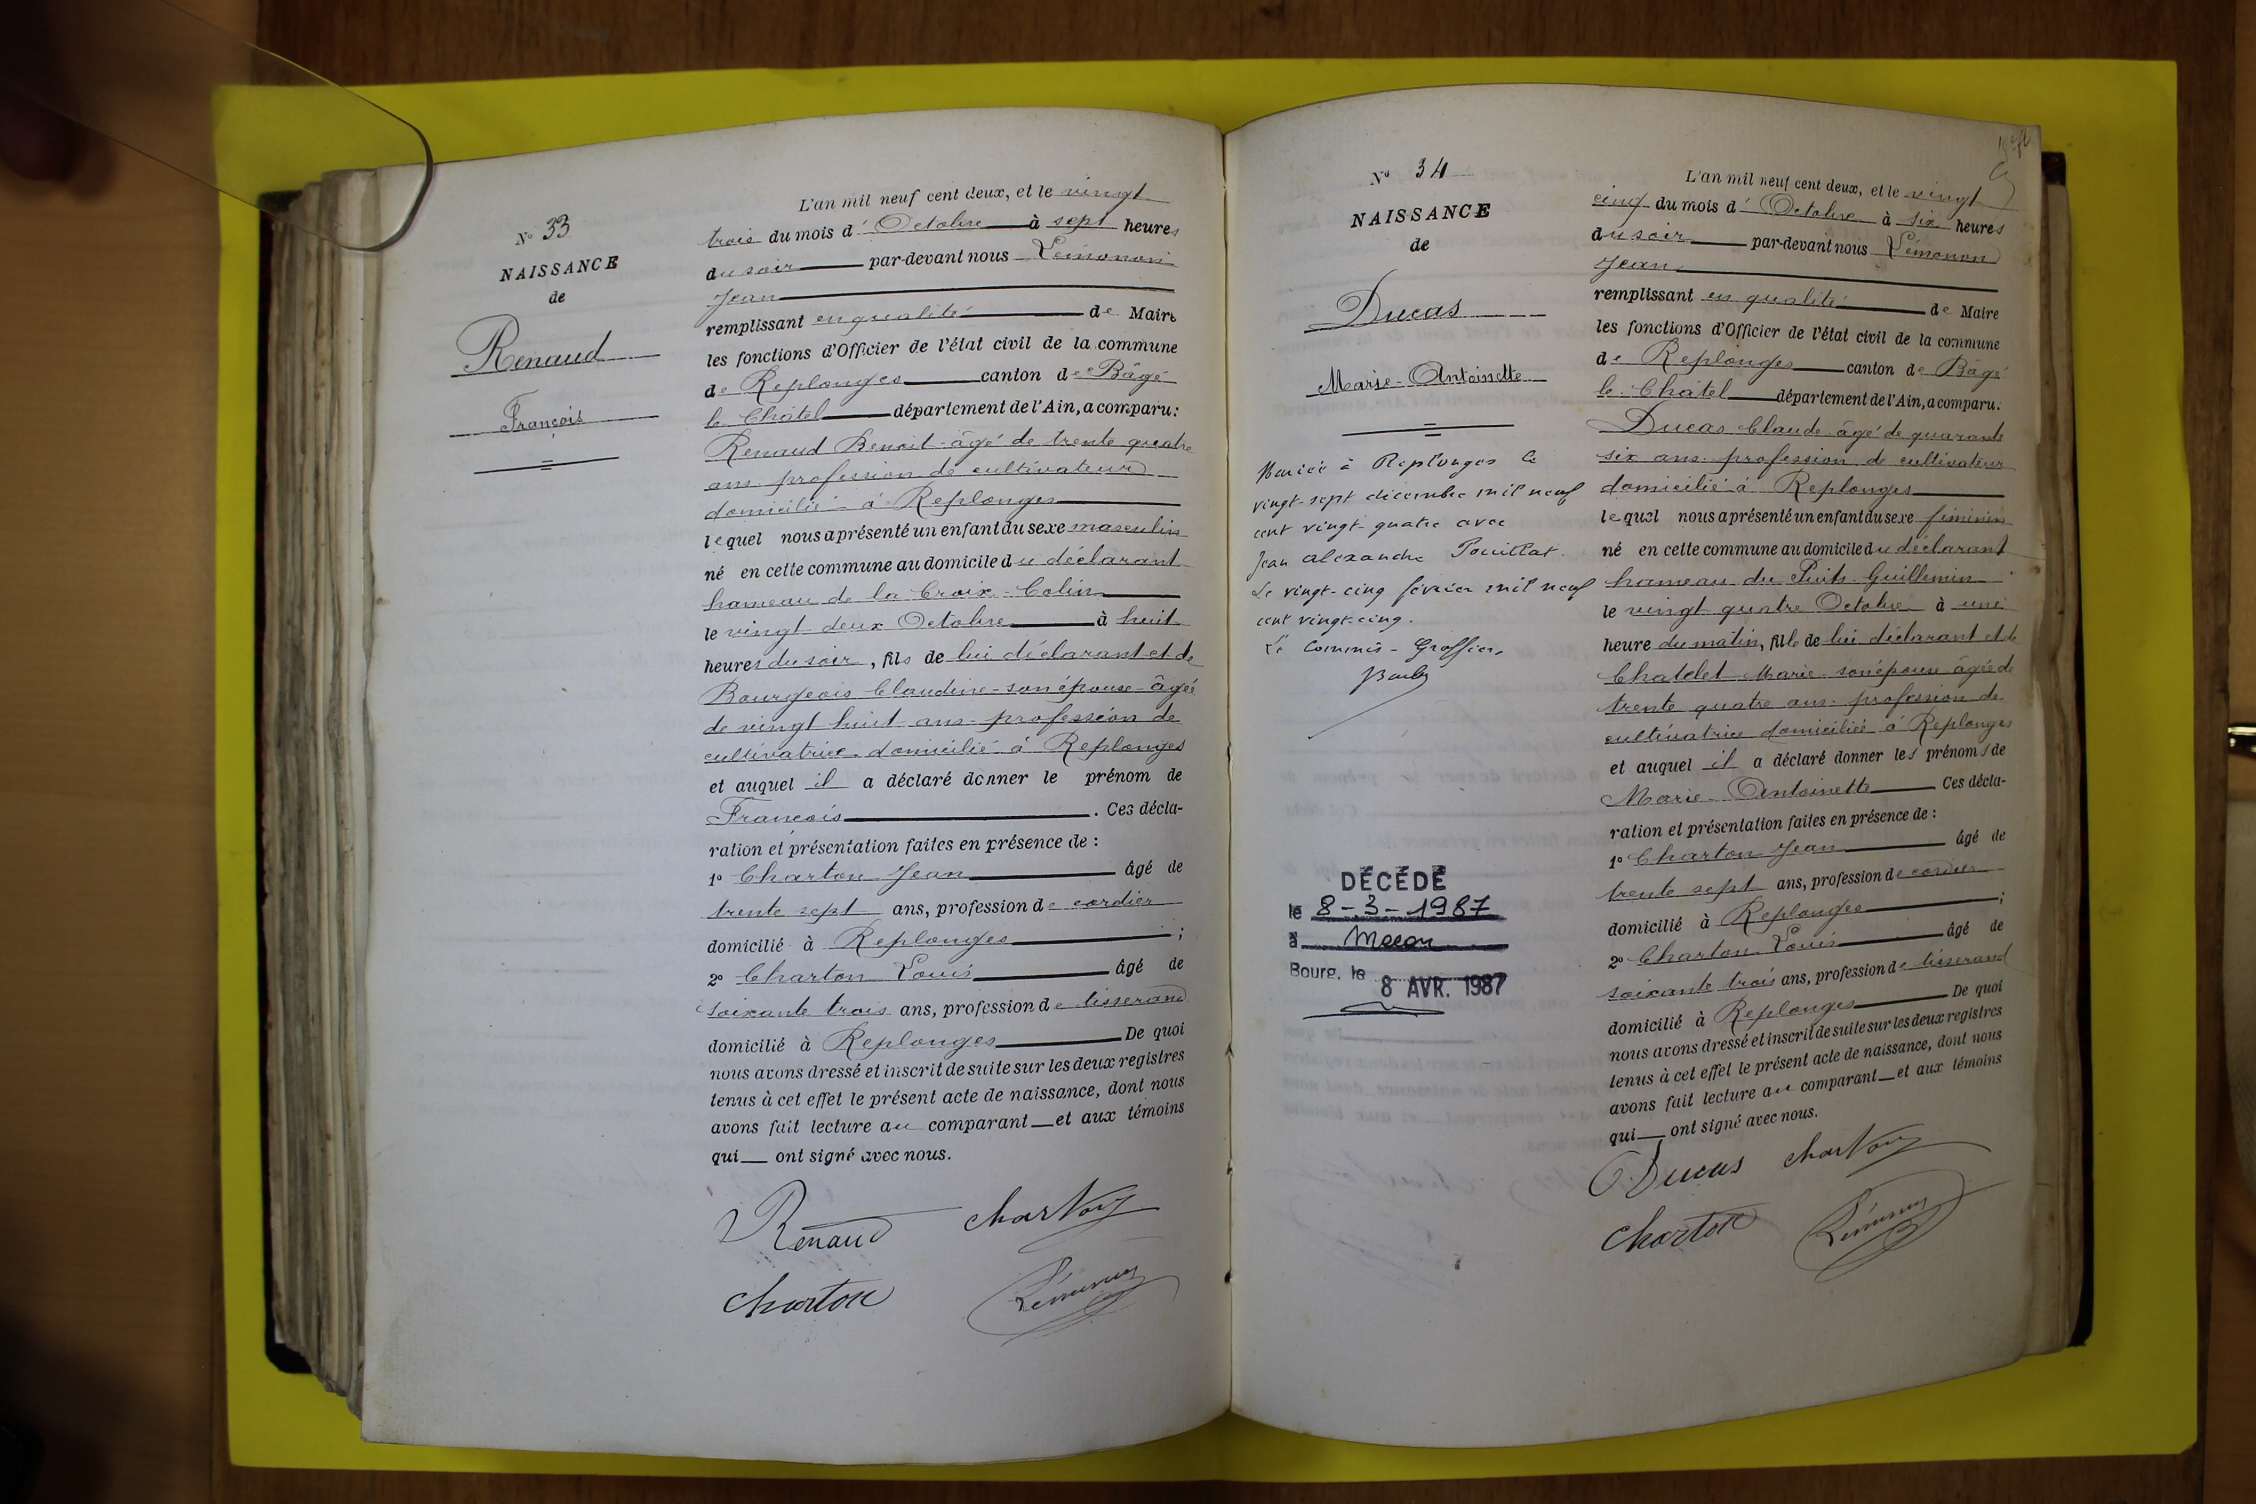 N° 33
NAISSANCE
de
Renaud
François
L'an mil neuf cent deux, et le vingt
trois du mois d' Octobre à sept heures
du soir par-devant nous Lémonon
Jean
remplissant en qualité de Maire
les fonctions d'Officier de l'état civil de la commune
de Replonges canton de Bâgé
le Châtel département de l'Ain, a comparu:
Renaud Benoit âgé de trente quatre
ans profession de cultivateur
domicilié à Replonges
lequel nous a présenté un enfant du sexe masculin
né en cette commune au domicile du déclarant
hameau de la Croix-Colin
le vingt deux Octobre à huit
heures du soir, fils de lui déclarant et de
Bourgeois Claudine son épouse âgée
de vingt huit ans profession de
cultivatrice domicilié à Replonges
et auquel il a déclaré donner le prénom de
François. Ces décla-
ration et présentation faites en présence de :
1° Charton Jean âgé de
trente sept ans, profession de cordier
domicilié à Replonges ;
2° Charton Louis âgé de
soixante trois ans, profession de tisserand
domicilié à Replonges De quoi
nous avons dressé et inscrit de suite sur les deux registres
tenus à cet effet le présent acte de naissance, dont nous
avons fait lecture au comparant et aux témoins
qui ont signé avec nous.
Renaud Charton
Charton Lémonon
N° 34
NAISSANCE
de
Ducas
Marie-Antoinette
Mariée à Replonges le
vingt-sept décembre mil neuf
cent vingt-quatre avec
Jean Alexandre Pouillat.
Le vingt-cinq février mil neuf
cent vingt-cinq.
Le Commis-Greffier,
DÉCÉDÉ
le 8-3-1987
à Macon
Bourg, le 8 AVR. 1987
L'an mil neuf cent deux, et le vingt
cinq du mois d' Octobre à six heures
du soir par-devant nous Lémonon
Jean
remplissant en qualité de Maire
les fonctions d'Officier de l'état civil de la commune
de Replonges canton de Bâgé
le Châtel département de l'Ain, a comparu:
Ducas Claude âgé de quarante
six ans profession de cultivateur
domicilié à Replonges
lequel nous a présenté un enfant du sexe féminin
né en cette commune au domicile du déclarant
hameau du Puits Guillemin
le vingt quatre Octobre à une
heure du matin, fille de lui déclarant et de
Chatelet Marie son épouse âgée de
trente quatre ans profession de
cultivatrice domiciliée à Replonges
et auquel il a déclaré donner les prénoms de
Marie-Antoinette Ces décla-
ration et présentation faites en présence de :
1° Charton Jean âgé de
trente sept ans, profession de cordier
domicilié à Replonges ;
2° Charton Louis âgé de
soixante trois ans, profession de tisserand
domicilié à Replonges De quoi
nous avons dressé et inscrit de suite sur les deux registres
tenus à cet effet le présent acte de naissance, dont nous
avons fait lecture au comparant et aux témoins
qui ont signé avec nous.
Ducas Charton
Charton Lémonon